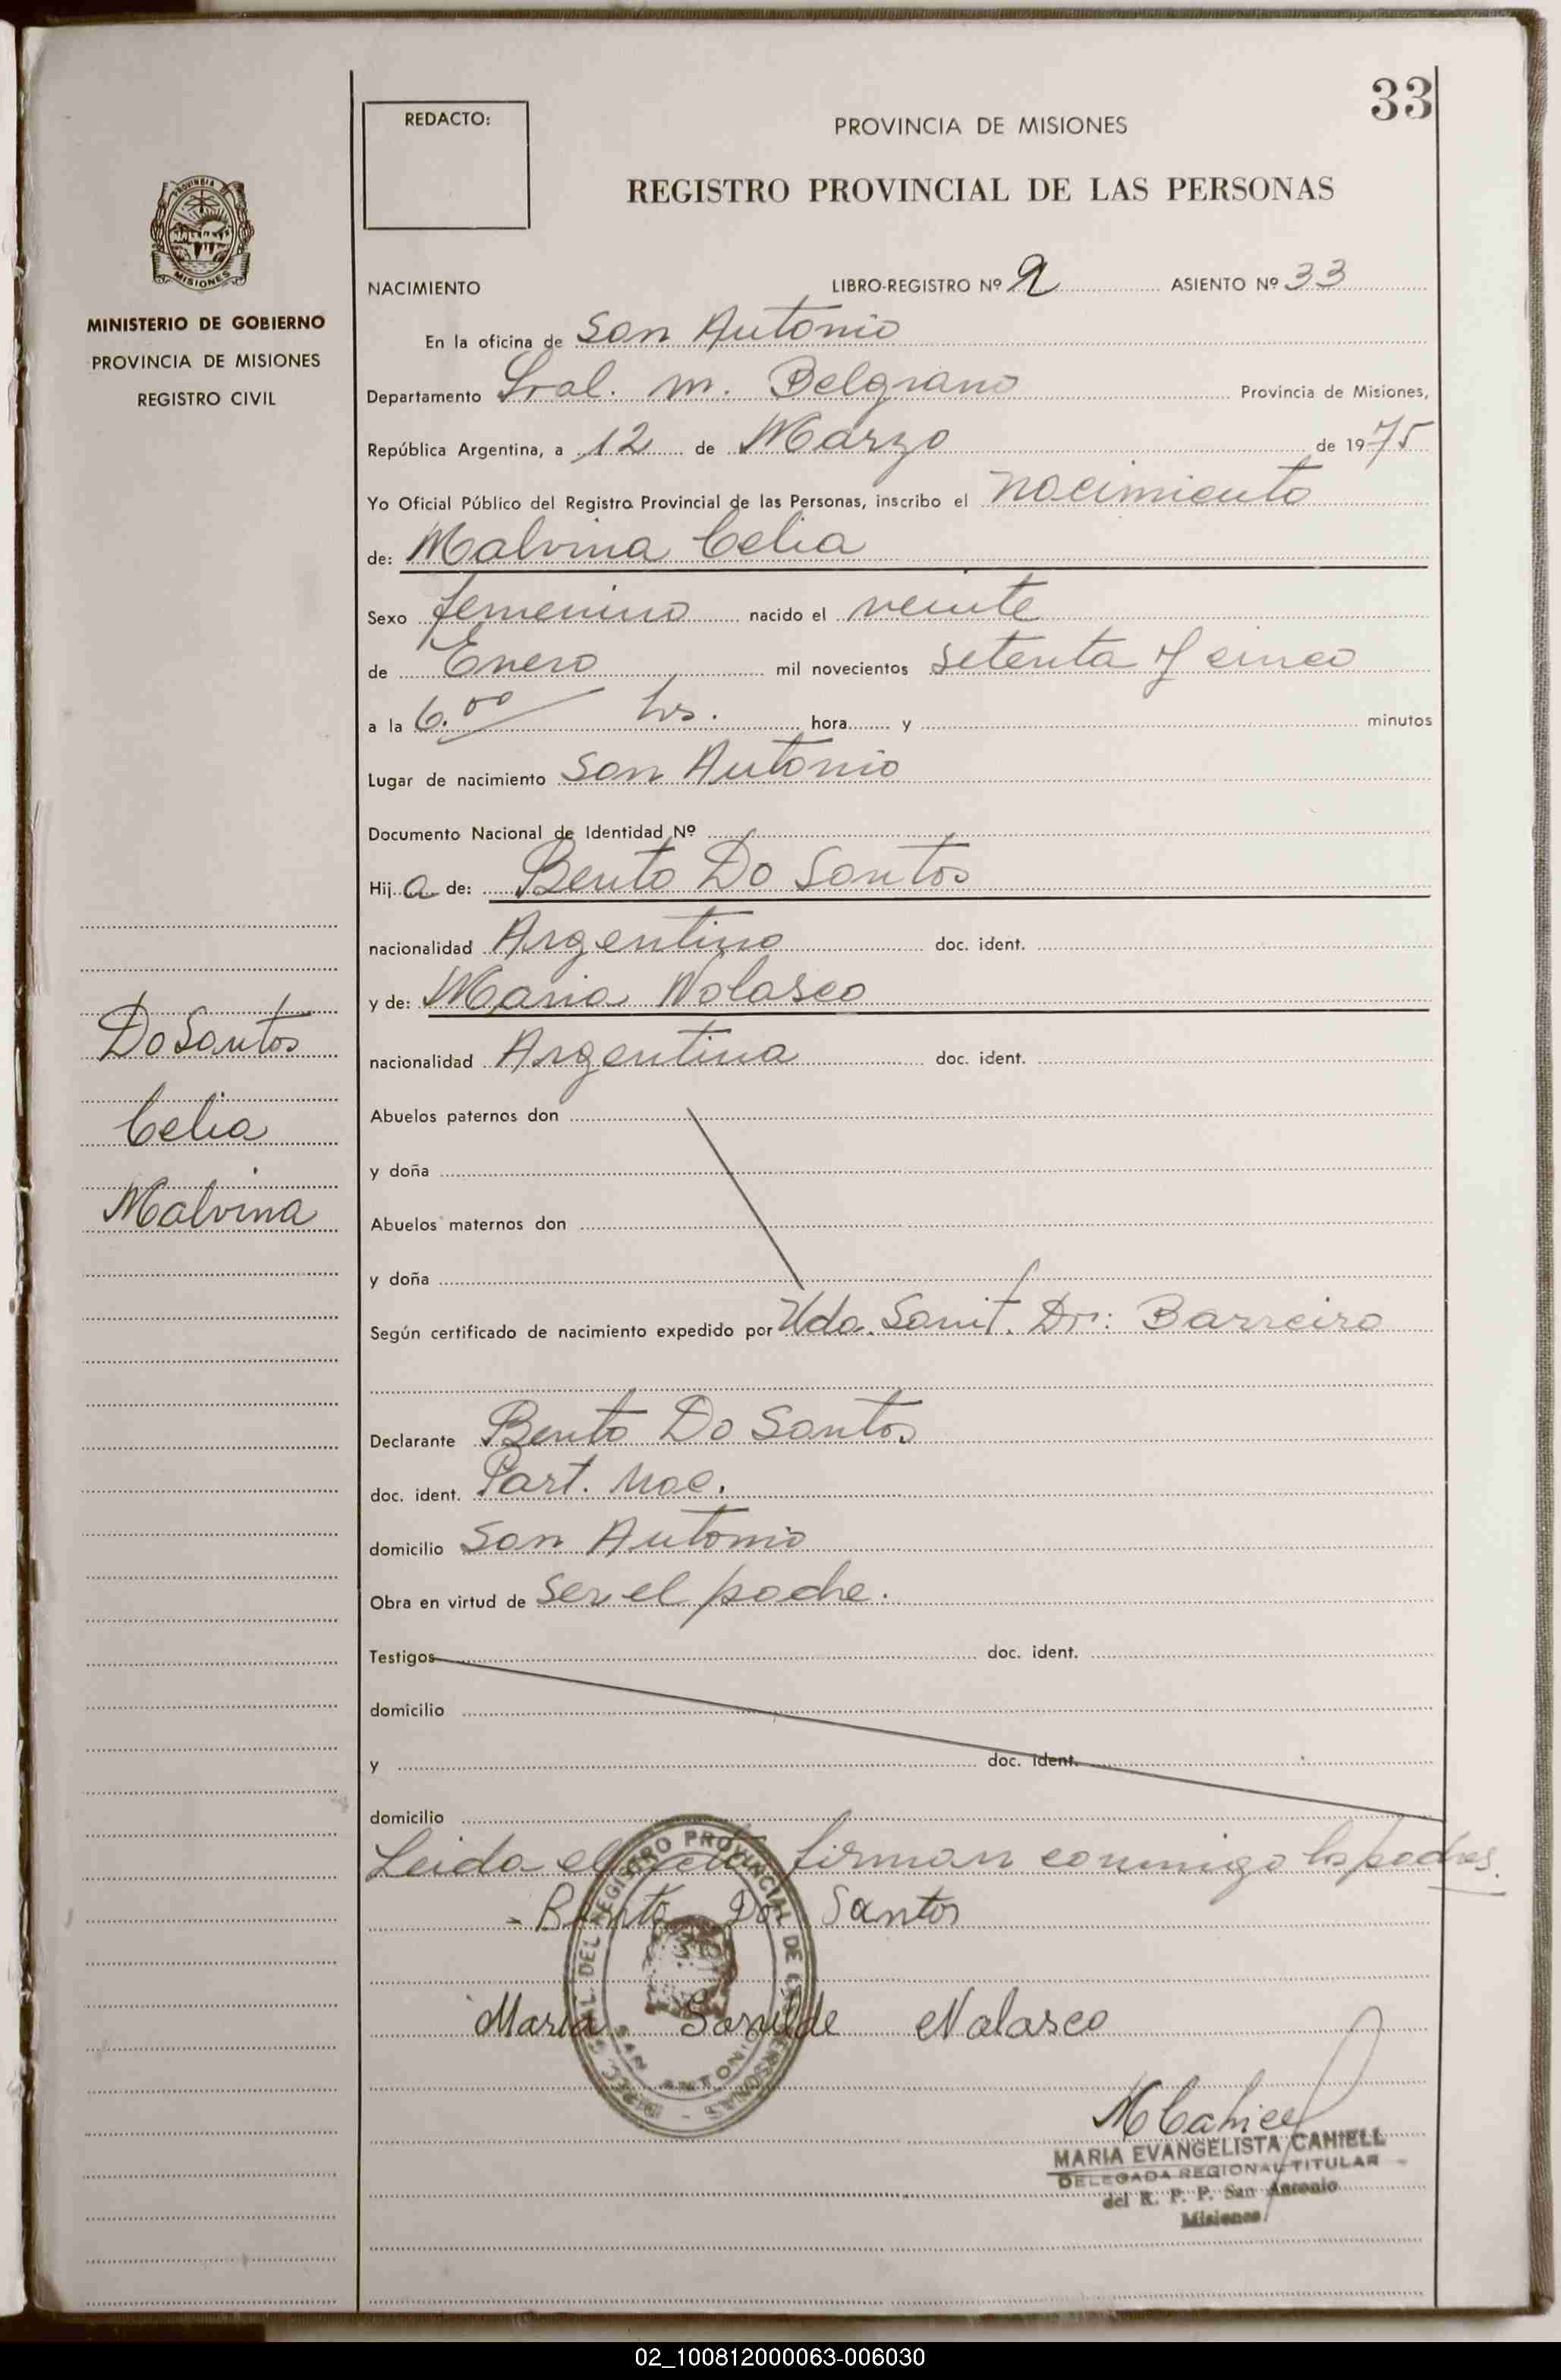 33
REDACTO:
PROVINCIA DE MISIONES
REGISTRO PROVINCIAL DE LAS PERSONAS
PROVINCIA DE
MISIONES
MINISTERIO DE GOBIERNO
PROVINCIA DE MISIONES
REGISTRO CIVIL
NACIMIENTO LIBRO-REGISTRO Nº 2 ASIENTO Nº 33
En la oficina de San Antonio
Departamento Gral. M. Belgrano Provincia de Misiones,
República Argentina, a 12 de Marzo de 1975
Yo Oficial Público del Registro Provincial de las Personas, inscribo el nacimiento
de: Malvina Celia
Sexo femenino nacido el veinte
de Enero mil novecientos setenta y cinco
a la 6.00 hrs. hora y minutos
Lugar de nacimiento San Antonio
Documento Nacional de Identidad Nº
Hija de: Bento Do Santos
nacionalidad Argentino doc. ident.
y de: Maria Nolasco
nacionalidad Argentina doc. ident.
Do Santos
Celia
Malvina
Abuelos paternos don
y doña
Abuelos maternos don
y doña
Según certificado de nacimiento expedido por Uda. Sanit. Dr: Barreiro
Declarante Bento Do Santos
doc. ident. Part. Nac.
domicilio San Antonio
Obra en virtud de ser el padre.
Testigos doc. ident.
domicilio
y doc. ident.
domicilio
Leida el acta firman conmigo los padres.
Bento Do Santos
Maria Nolasco
DEL REGISTRO PROVINCIAL DE PERSONAS
SAN ANTONIO
MCahiell
MARIA EVANGELISTA CAHIELL
DELEGADA REGIONAL TITULAR
del R. P. P. San Antonio
Misiones
02_100812000063-006030